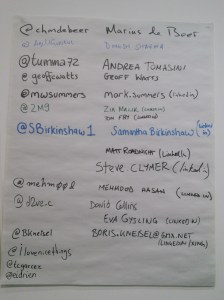 @chmdebeer Marius de Beer
@tumma72 ANDREA TOMASINI
@geoffcwatts GEOFF WATTS
@mwsummers mark.summers (linkedin)
@ZM9 ZIA MALIK (LINKEDIN)
JIM FRY (LINKEDIN)
@SBirkinshaw1 Samantha Birkinshaw (linkedin)
MATT ROADNIGHT (LinkedIn)
Steve CLYMER (linked in)
MEHMOOD HASAN (LINKED IN)
David Collins
EVA GYSLING (LINKEDIN)
@BKnebel BORIS.KNEBEL@GMX.NET
(LINKEDIN/XING)
@ilovenicethings